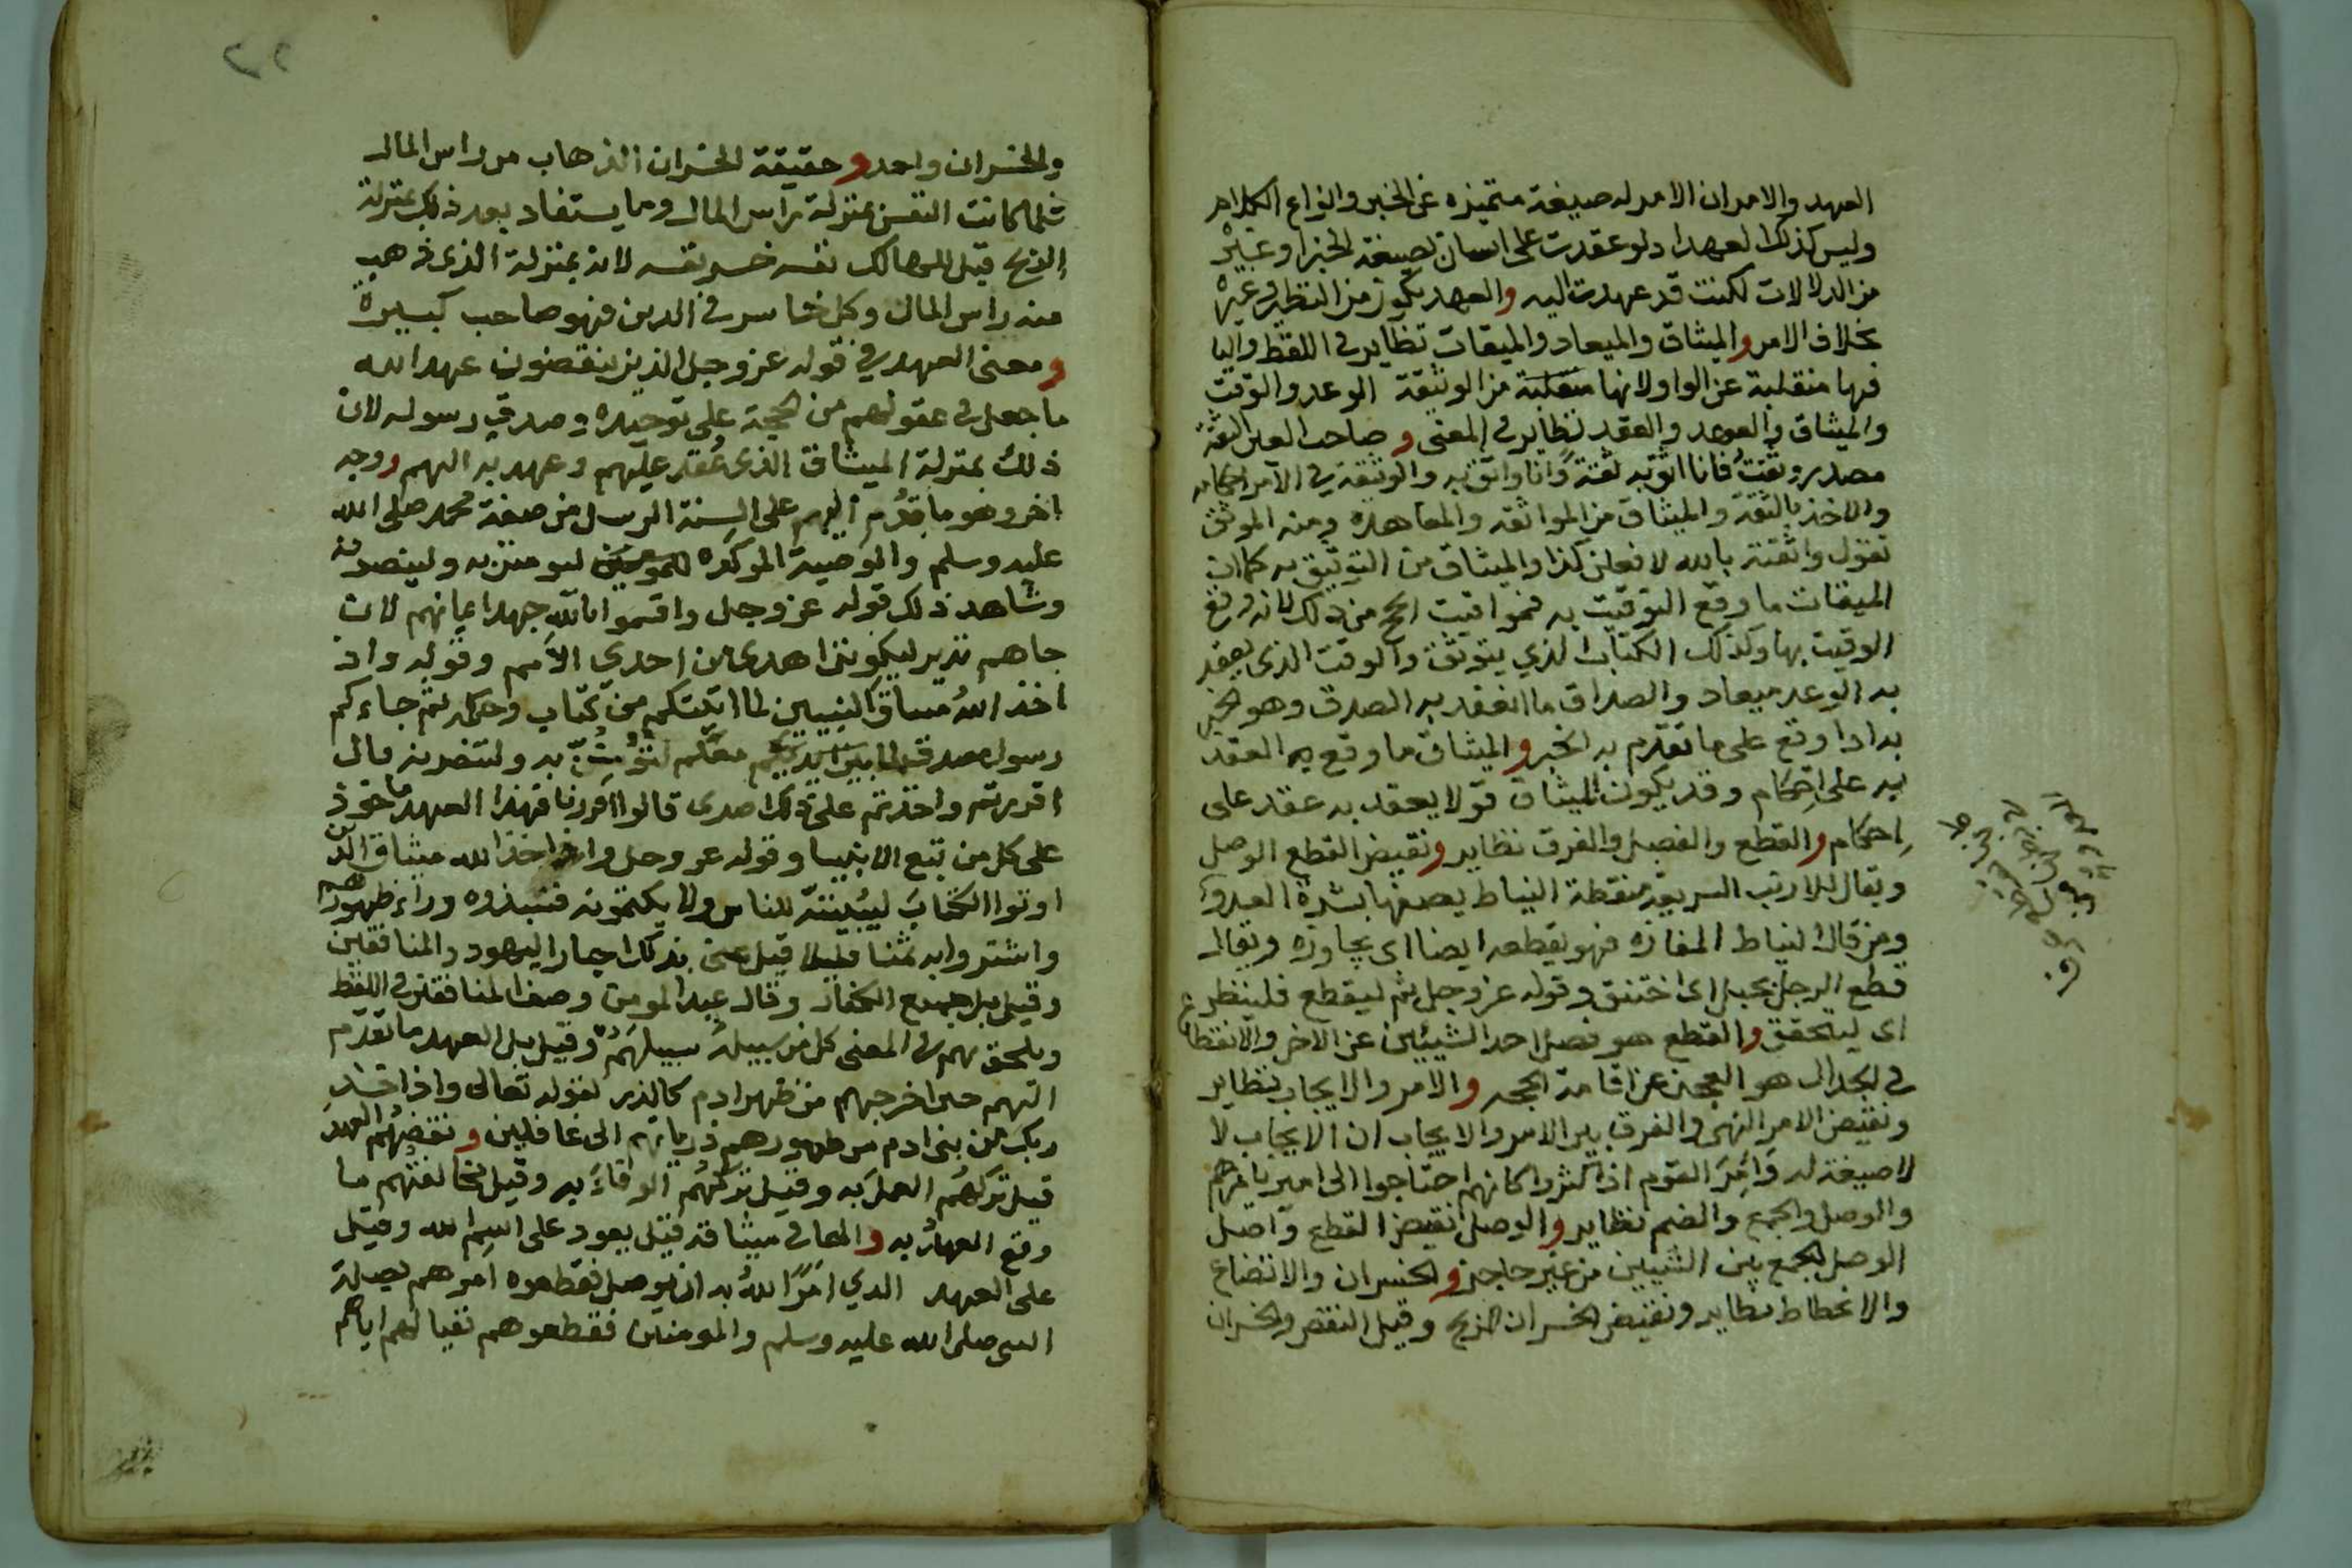 العهد والامر ان الامر له صيغة متميزه عن الخبر وانواع الكلام
وليس كذلك العهد اد لو عقدت على انسان بصيغة الخبر او غيره
من الدلالات لكنت قد عهدت اليه والعهد يكون من النظير وغيره
بخلاف الامر والميثاق والميعاد والميقات نظاير في اللفظ واليا
فيها منقلبة عن الواو لانها منقلبة من الوثيقة الوعد والوقت
والميثاق والوعد والعقد نظاير في المعنى و صاحب العين الثقة
مصدر وثقت فانا اثق به ثقة وانا واثق به والوثيقة في الامر احكامه
والاخذ بالثقة والميثاق من المواثقه والمعاهده ومنه الموثق
تقول واثقته بالله لافعلن كذا والميثاق من التوثيق به كما ان
الميقات ما وقع التوقيت به فمواقيت الحج من ذلك لانه وقع
الوقيت بها وكذلك الكتاب الذي يتوثق والوقت الذي يعقد
به الوعد ميعاد والصداق ما انعقد به الصدق وهو الخبر
بدا اوقع على ما تقدم به الخبر والميثاق ما وقع به العقد
به على احكام وقد يكون الميثاق قولا يعقد به عقد على
احكام والقطع والفصل والفرق نظاير ونقيض القطع الوصل
ويقال للارنب السريعة مقطعة النياط يصفها بشدة العدو
ومن قال النياط المفازه فهو يقطعه ايضا اى يجاوزه ويقال
قطع الرجل بحبل اى اختنق وقوله عز وجل ثم ليقطع فلينظر
اى ليختنق والقطع هو فصل احد الشيئين عن الاخر والانقطاع
في الجدال هو العجز عن اقامة الحجه والامر والايجاب نظاير
ونقيض الامر النهى والفرق بين الامر والايجاب ان الايجاب لا
لا صيغة له وامر القوم اذا كثروا كانهم احتاجوا الى امير يامرهم
والوصل والجمع والضم نظاير والوصل نقيض القطع واصل
الوصل الجمع بين الشيئين من غير حاجز والخسران والاتضاع
والانحطاط نظاير ونقيض الخسران الربح وقيل النقص والخسران
والخسران واحد وحقيقة الخسران الذهاب من راس المال
فلما كانت النفس بمنزلة راس المال وما يستفاد بعد ذلك بمنزلة
الربح قيل للهالك نفسه خسر نفسه لانه بمنزلة الذى ذهب
منه راس المال وكل خاسر في الدين فهو صاحب كبيرة
ومعنى العهد في قوله عز وجل الذين ينقضون عهد الله
ما جعل في عقولهم من الحجة على توحيده وصدق رسوله لان
ذلك بمنزلة الميثاق الذى عقد عليهم وعهد به اليهم ووجه
اخر وهو ما قدم اليهم على السنة الرسل من صفة محمد صلى الله
عليه وسلم والوصية الموكده ليومنن به ولينصرنه
وشاهد ذلك قوله عز وجل واقسموا بالله جهد ايمانهم لان
جاهم نذير ليكونن اهدى من احدى الامم وقوله واذ
اخذ الله ميثاق النبيين لما اتيتكم من كتاب وحكمه ثم جاءكم
رسول مصدق لما معكم لتؤمنن به ولتنصرنه قال
اقررتم واخذتم على ذلكم اصرى قالوا اقررنا فهذا العهد ماخوذ
على كل من تبع الانبيا وقوله عز وجل واذ اخذ الله ميثاق الذين
اوتوا الكتاب ليبيننه للناس ولا يكتمونه فنبذوه وراء ظهورهم
واشتروا به ثمنا قليلا قيل عنى بذلك احبار اليهود والمنافقين
وقيل بل جميع الكفار وقال عبد المومن وصف المنافقين في اللفظ
ويلحق بهم في المعنى كل من سبيله سبيلهم وقيل بل العهد ما تقدم
اليهم حين اخرجهم من ظهر ادم كالذر لقوله تعالى واذ اخذ
ربك من بنى ادم من ظهورهم ذرياتهم الى غافلين ونقضهم العهد
قيل تركهم العمل به وقيل تركهم الوفاء به وقيل مخالفتهم ما
وقع العهد به والها في ميثاقه قيل يعود على اسم الله وقيل
على العهد الذي امر الله به ان يوصل فقطعوه امرهم بصلة
النبي صلى الله عليه وسلم والمومنين فقطعوهم اياهم